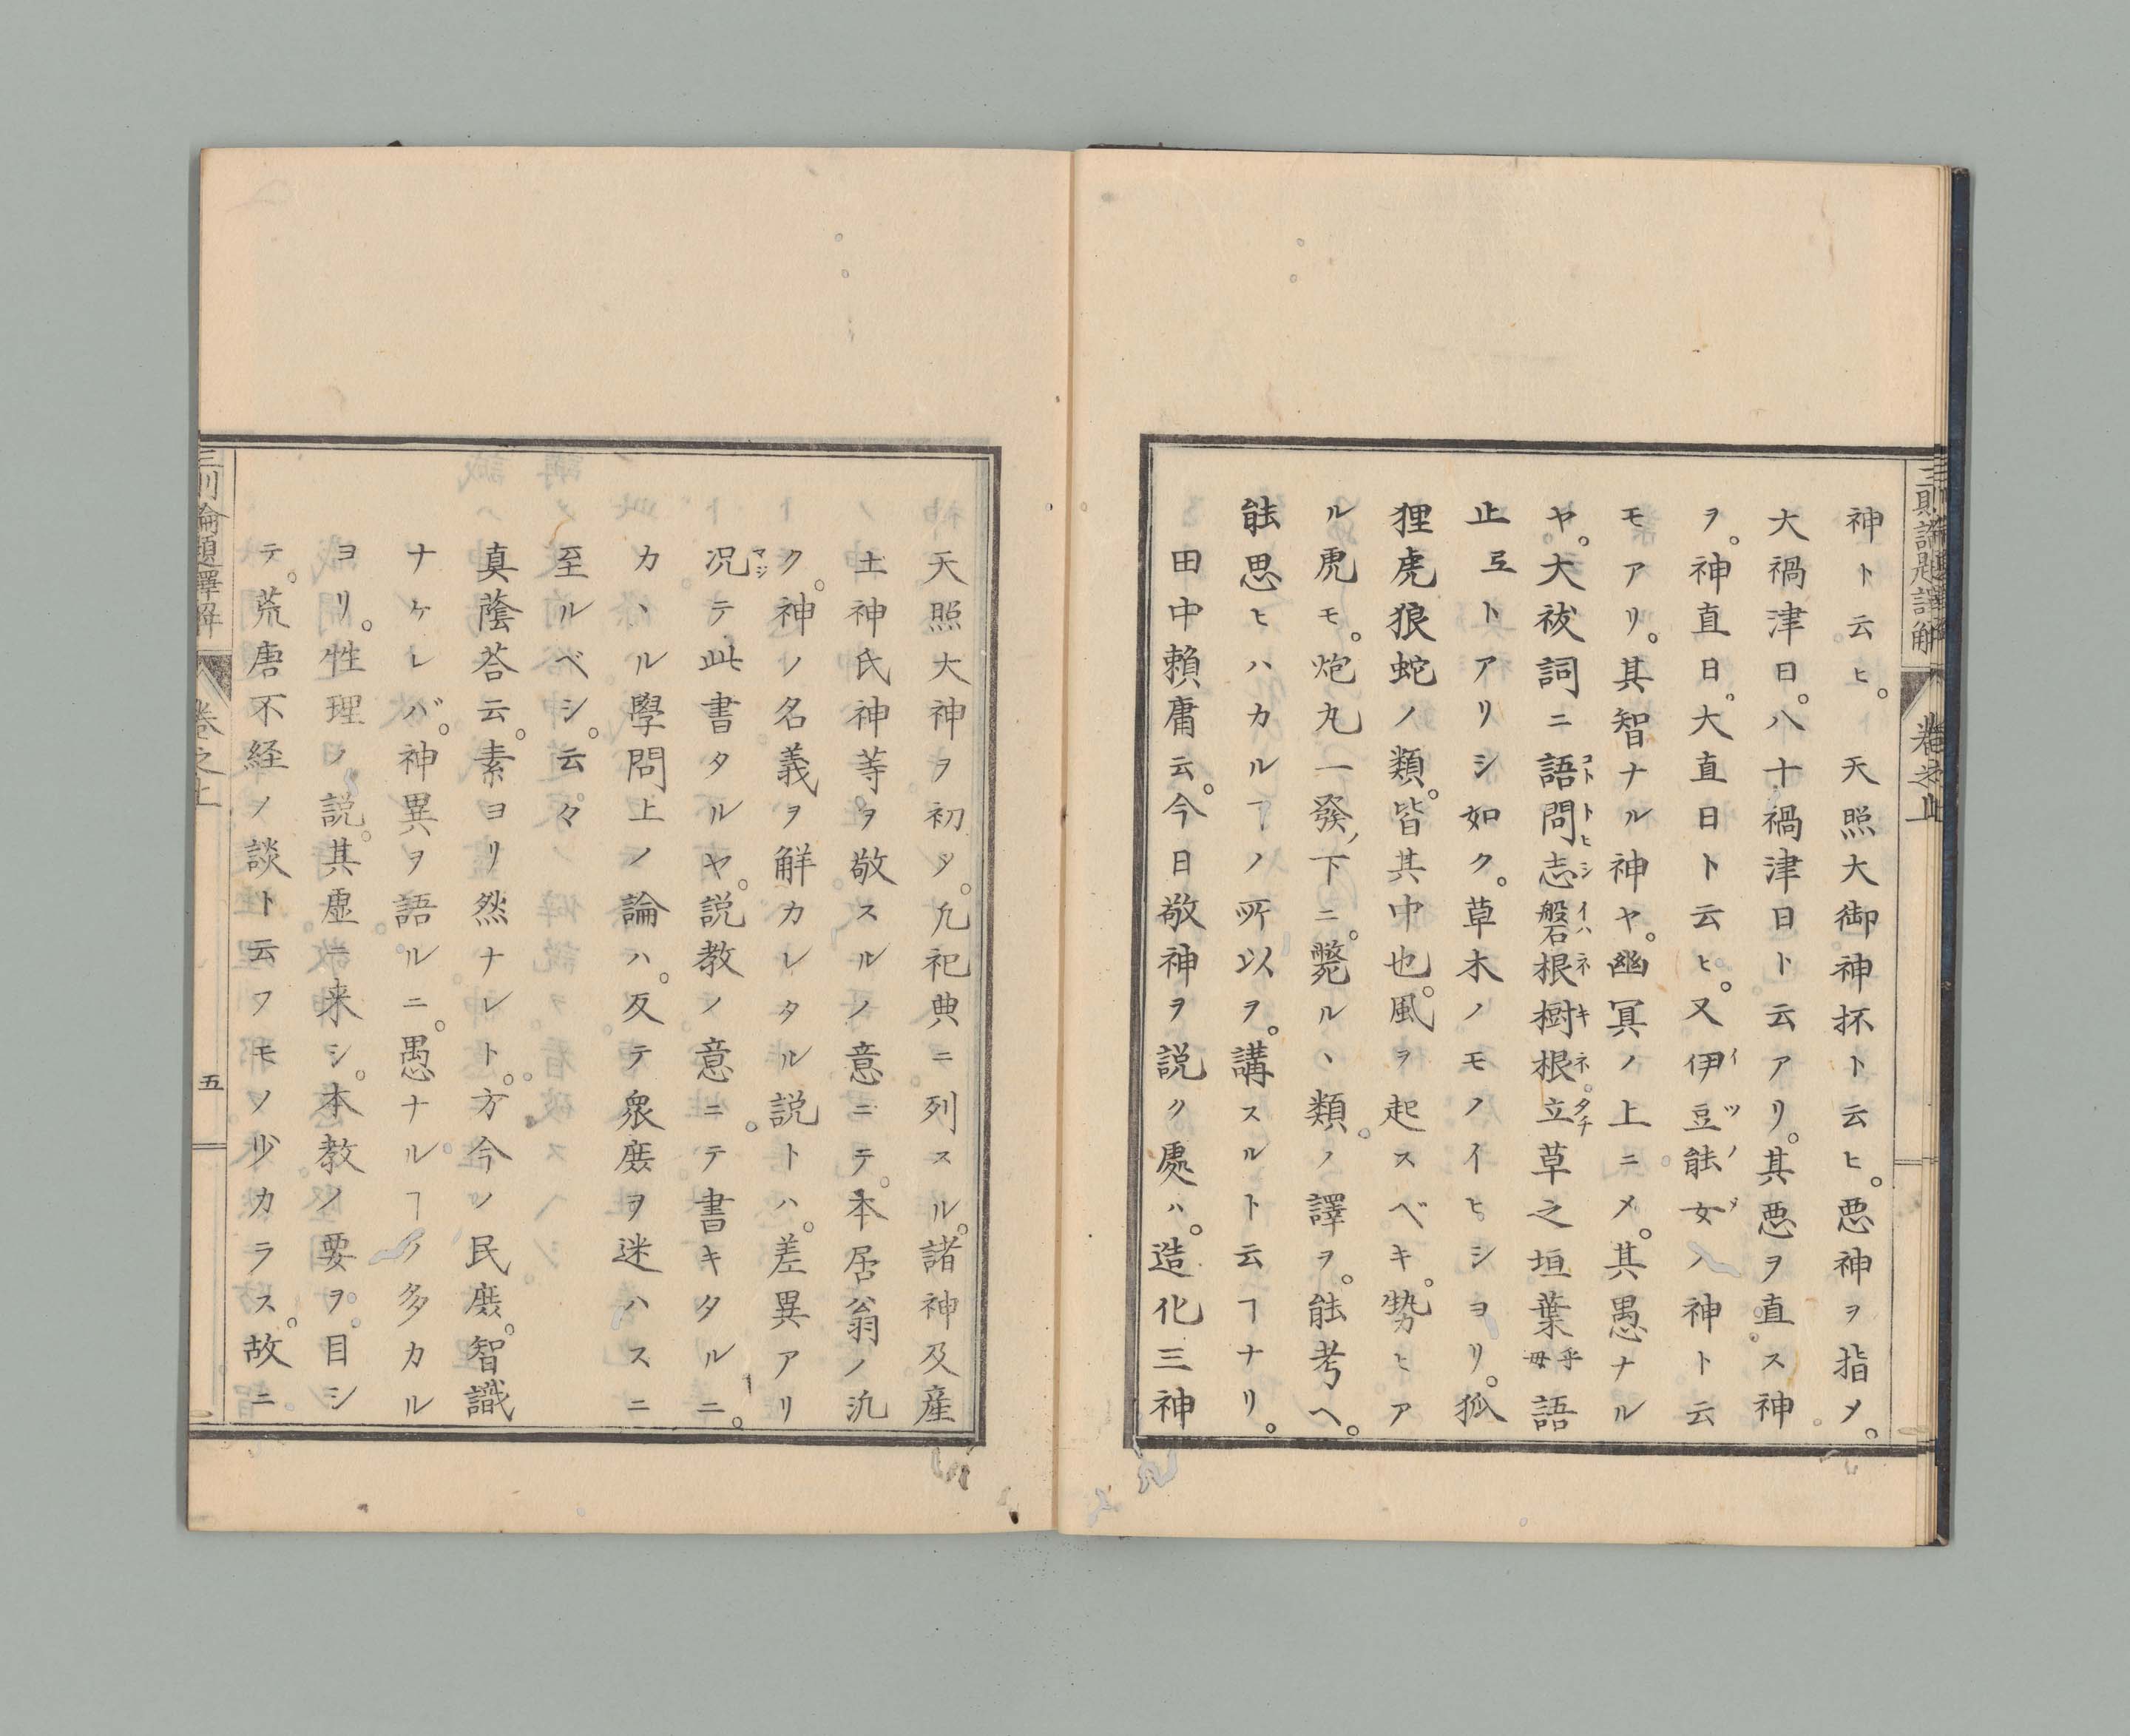 神ト云ヒ。天照大御神抔ト云ヒ。悪神ヲ指メ。
大禍津日。八十禍津日ト云アリ。其悪ヲ直ス神
ヲ。神直日。大直日ト云ヒ。又伊豆能女ノ神ト云
モアリ。其智ナル神ヤ。幽冥ノ上ニメ。其愚ナル
ヤ。大祓詞ニ語問志磐根樹根立草之垣葉乎毋語
止弖トアリシ如ク。草木ノモノイヒシヨリ。狐
狸虎狼蛇ノ類。皆其中也。風ヲ起スベキ。勢ヒア
ル虎モ。炮丸一發ノ下ニ。斃ルヽ類。ノ譯ヲ。能考ヘ。
能思ヒハカルヿノ所以ヲ。講スルト云ヿナリ。
田中頼庸云。今日敬神ヲ説ク處ハ。造化三神
天照大神ヲ初タ。凡祀典ニ列スル。諸神及産
土神氏神等ヲ敬スルノ意ニテ。本居翁ノ汎
ク。神ノ名義ヲ解カレタル説トハ。差異アリ
况テ此書タルヤ。説教ノ意ニテ書キタルニ。
カヽル學問上ノ論ハ。反テ衆庶ヲ迷ハスニ
至ルベシ。云々
真蔭荅云。素ヨリ然ナレト。方今ノ民庶。智識
ナケレバ。神異ヲ語ルニ。愚ナルヿノ多カル
ヨリ。性理ノ説。其虚ニ来シ。本教ノ要ヲ。目シ
テ。荒唐不経ノ談ト云フモノ少カラス。故ニ
三則論題譯解
巻之上
五